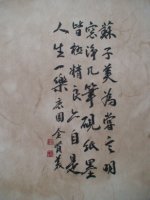 蘇子美為嘗言明
窓淨几筆硯紙墨
皆極精良亦自是
人生一樂